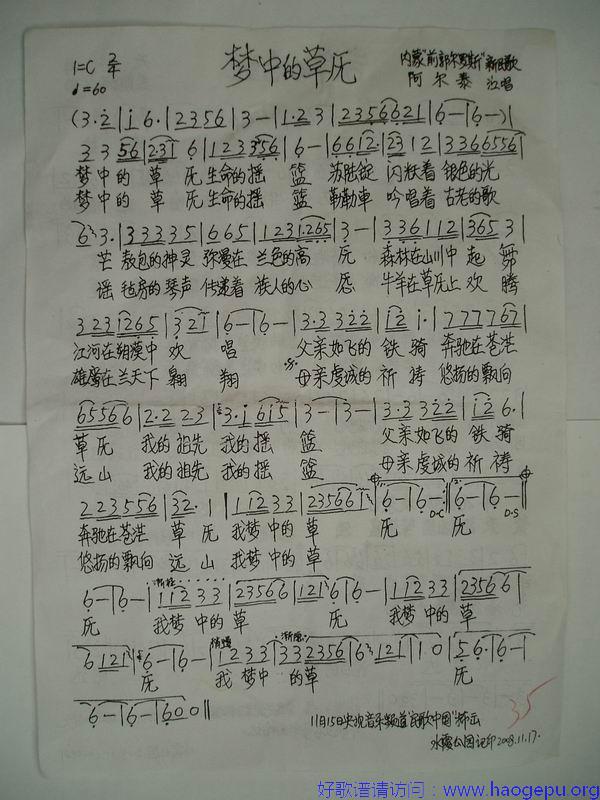 梦中的草厡
1=C 2/4
♩=60
内蒙"前郭尔罗斯"新民歌
阿尔泰 演唱
(3·2|1 6·|2356|3-|1·23|23566 21|6-|6-)|
33 56|2321 6|12 33 56|6-|66 12·|23 12|33 66556|
梦中的 草 厡 生命的摇 篮 苏胜锭 闪烁着 银色的光
梦中的 草 厡 生命的摇 篮 勒勒車 吟唱着 古老的歌
6 3·|33335|665|1231·265|3-|336112|365 3|
芒 敖包的神灵 弥漫在 兰色的高 厡 森林在山川中 起 舞
谣 毡房的琴声 传递着 族人的心 愿 牛羊在草厡上 欢 腾
3231265|321|6-|6-|3·3322|12 1·|777767|
江河在朔漠中 欢 唱 父亲如飞的 铁 骑 奔驰在苍茫
雄鹰在兰天下 翱 翔 母亲虔城的 祈 祷 悠扬的飘向
65566|2·223|3·1615|3-|3-|3·3322|12 6·|
草厡 我的祖先 我的摇 篮 父亲如飞的 铁 骑
远山 我的祖先 我的摇 篮 母亲虔城的 祈 祷
223556|32·1|11233|2356 61|6-|6-|6-|6-|
D·C D·S
奔驰在苍茫 草 厡 我梦中的 草 厡 厡
悠扬的飘向 远 山 我梦中的 草
6-|6-|11233|23566|121|6 6-|11233|23566|
厡 我梦 中的 草 厡 我梦 中的 草
6 121|6-|6-|1233|332356|6·121|1 0|56·|6-|
厡 我 梦中 的草 厡
6-|6-|600||
11月15日央视音乐频道"民歌中国"播出
水露公园记印2008.11.17.
35
好歌谱请访问：www.haogepu.org